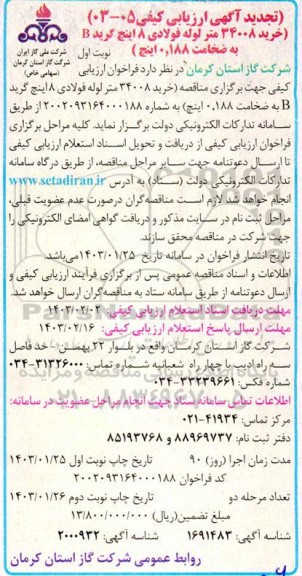 (تجدید آگهی ارزیابی کیفی ۰۵-۰۳)
(خرید ۳۴۰۰۸ متر لوله فولادی ۸ اینچ گرید B
به ضخامت ۰,۱۸۸ اینچ)
نوبت اول
شرکت ملی گاز ایران
شرکت گاز استان کرمان
(سهامی خاص)
شرکت گاز استان کرمان در نظر دارد فراخوان ارزیابی
کیفی جهت برگزاری مناقصه (خرید ۳۴۰۰۸ متر لوله فولادی ۸ اینچ گرید
B به ضخامت ۰,۱۸۸ اینچ) به شماره ۲۰۰۲۰۹۳۱۶۴۰۰۰۱۸۸ از طریق
سامانه تدارکات الکترونیکی دولت برگزار نماید. کلیه مراحل برگزاری
فراخوان ارزیابی کیفی از دریافت و تحویل اسناد استعلام ارزیابی کیفی
تا ارسال دعوتنامه جهت سایر مراحل مناقصه، از طریق درگاه سامانه
تدارکات الکترونیکی دولت (ستاد) به آدرس www.setadiran.ir
انجام خواهد شد. لازم است مناقصه‌گران درصورت عدم عضویت قبلی،
مراحل ثبت نام در سایت مذکور و دریافت گواهی امضای الکترونیکی را
جهت شرکت در مناقصه محقق سازند.
تاریخ انتشار فراخوان در سامانه تاریخ ۱۴۰۳/۰۱/۲۵ می‌باشد.
اطلاعات و اسناد مناقصه عمومی پس از برگزاری فرآیند ارزیابی کیفی و
ارسال دعوتنامه از طریق سامانه ستاد به مناقصه‌گران ارسال خواهد شد.
مهلت دریافت اسناد استعلام ارزیابی کیفی: ۱۴۰۳/۰۲/۰۲
مهلت ارسال پاسخ استعلام ارزیابی کیفی: ۱۴۰۳/۰۲/۱۶
شرکت گاز استان کرمان واقع در بلوار ۲۲ بهمن- حد فاصل
سه راه ادیب با چهار راه شعبانیه شماره تماس: ۳۱۳۲۶۰۰۰-۰۳۴
شماره فکس: ۳۳۲۳۹۶۶۱-۰۳۴
اطلاعات تماس سامانه ستاد جهت انجام مراحل عضویت در سامانه:
مرکز تماس: ۴۱۹۳۴-۰۲۱
دفتر ثبت نام: ۸۸۹۶۹۷۳۷ و ۸۵۱۹۳۷۶۸
مدت زمان اجرا (روز) ۹۰ تاریخ چاپ نوبت اول ۱۴۰۳/۰۱/۲۵
کد فراخوان ۲۰۰۲۰۹۳۱۶۴۰۰۰۱۸۸
تعداد مرحله دو تاریخ چاپ نوبت دوم ۱۴۰۳/۰۱/۲۶
مبلغ تضمین(ریال) ۱۳/۸۰۰/۰۰۰/۰۰۰
شناسه آگهی: ۱۶۹۱۴۸۳ شناسه آگهی: ۲۰۰۰۹۳۲
روابط عمومی شرکت گاز استان کرمان